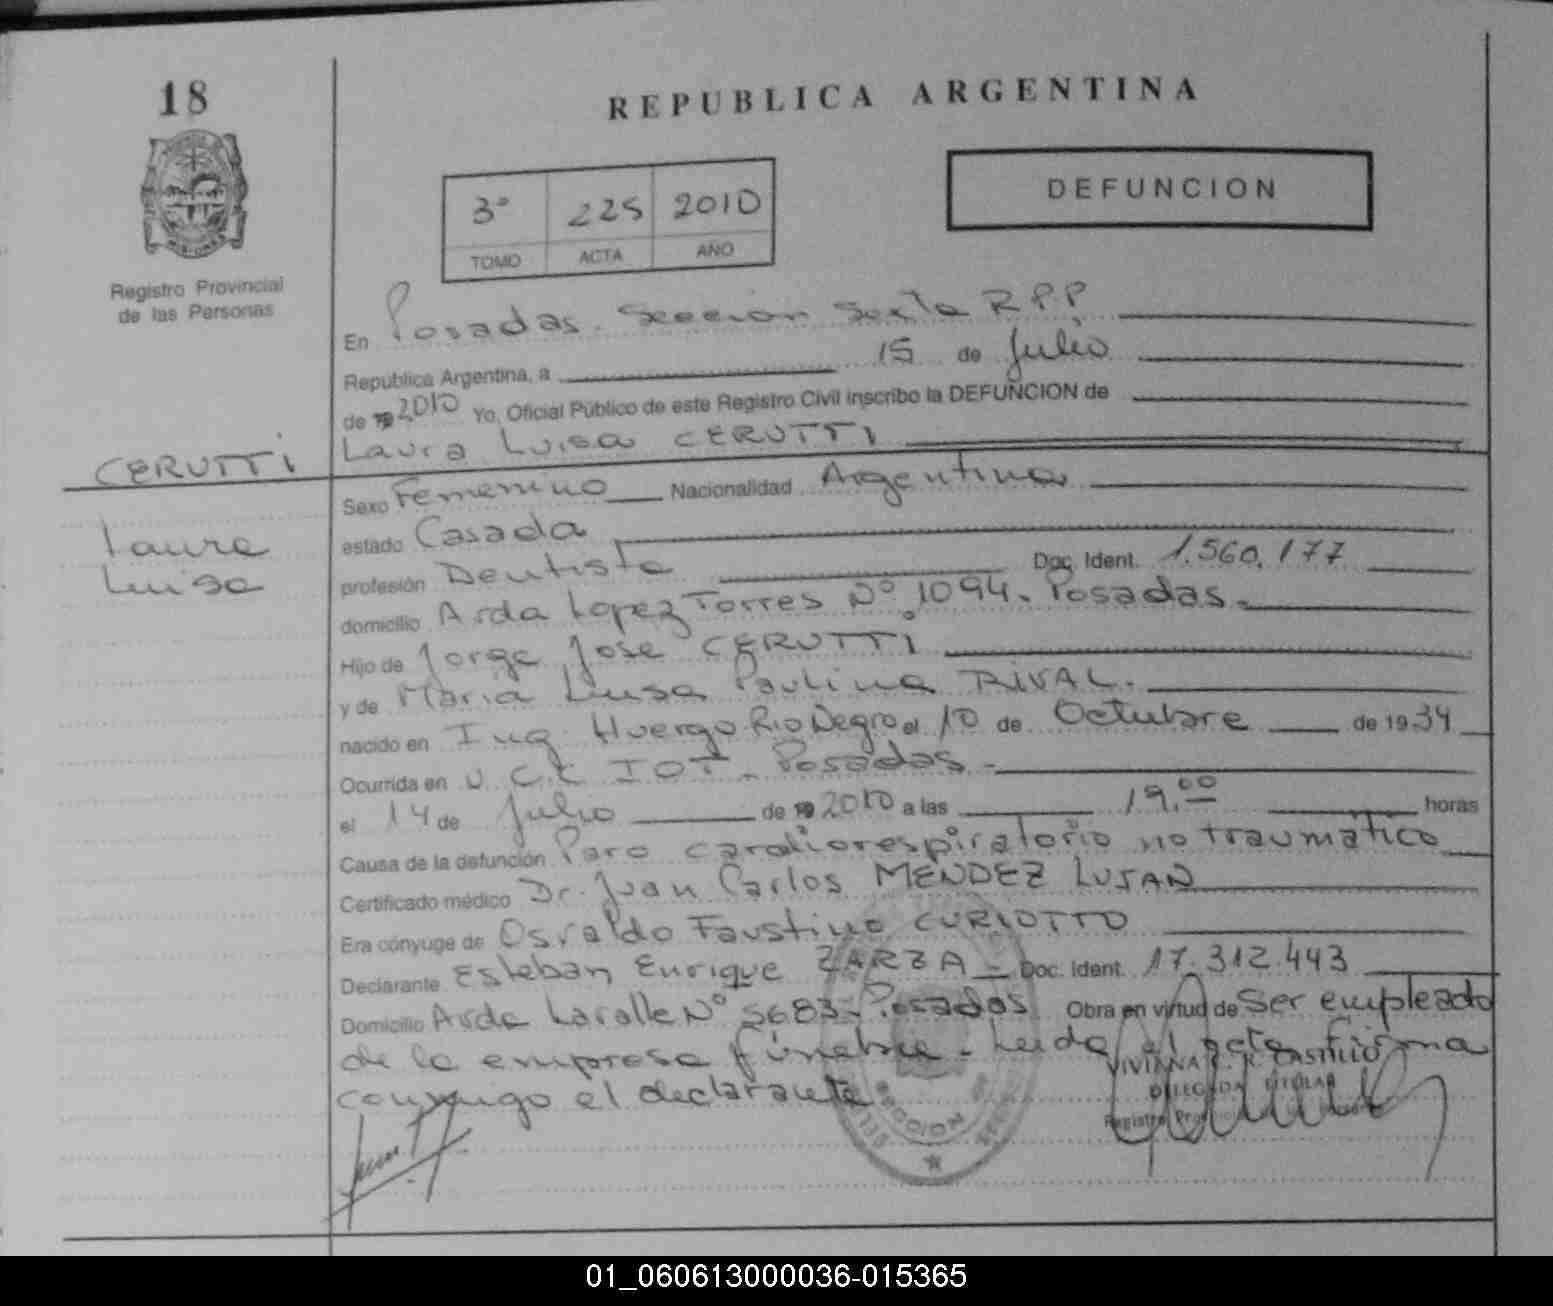 18
REPUBLICA ARGENTINA
DEFUNCION
3° 225 2010
TOMO ACTA AÑO
Registro Provincial
de las Personas
En Posadas. Seccion Sexta R P P
República Argentina, a 15 de Julio
de 19 2010 Yo, Oficial Público de este Registro Civil inscribo la DEFUNCION de
Laura Luisa CERUTTI
CERUTTI
Laura
Luisa
Sexo Femenino Nacionalidad Argentina
estado Casada
profesión Dentista Doc. Ident. 1.560.177
domicilio Avda Lopez Torres Nº 1094. Posadas.
Hijo de Jorge Jose CERUTTI
y de Maria Luisa Paulina RIVAL.
nacido en Ing. Huergo Rio Negro el 10 de Octubre de 1934
Ocurrida en U. C. I. IOT - Posadas -
el 14 de Julio de 19 2010 a las 19.00 horas
Causa de la defunción Paro cardiorespiratorio no traumatico
Certificado médico Dr. Juan Carlos MENDEZ LUJAN
Era cónyuge de Osvaldo Faustino CURIOTTO
Declarante Esteban Enrique ZARZA - Doc. Ident. 17.312.443
Domicilio Avda Lavalle Nº 5683 - Posadas Obra en virtud de Ser empleado
de la empresa fúnebre - Leida el acta firma
conmigo el declarante
VIVIANA R. CASTILLO
DELEGADA TITULAR
SECCION
01_060613000036-015365